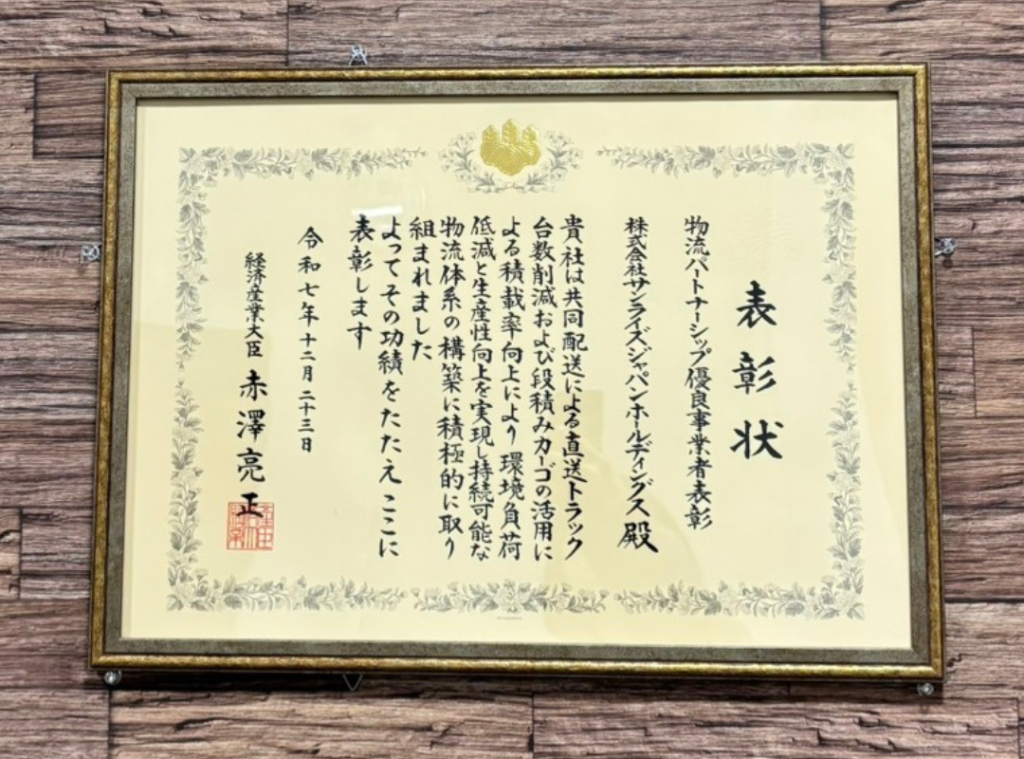 表彰状
物流パートナーシップ優良事業者表彰
株式会社サンライズジャパンホールディングス 殿
貴社は共同配送による直送トラック
台数削減および段積みカーゴの活用に
よる積載率向上により環境負荷
低減と生産性向上を実現し持続可能な
物流体系の構築に積極的に取り
組まれました
よってその功績をたたえここに
表彰します
令和七年十二月二十三日
経済産業大臣 赤澤亮正